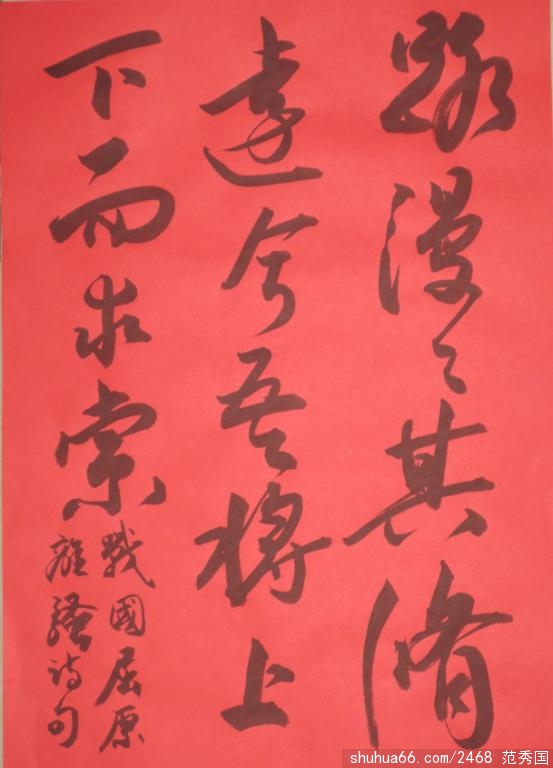 路漫々其脩
遠兮吾将上
下而求索
戰國屈原
離騷詩句
shuhua66.com/2468 范秀国